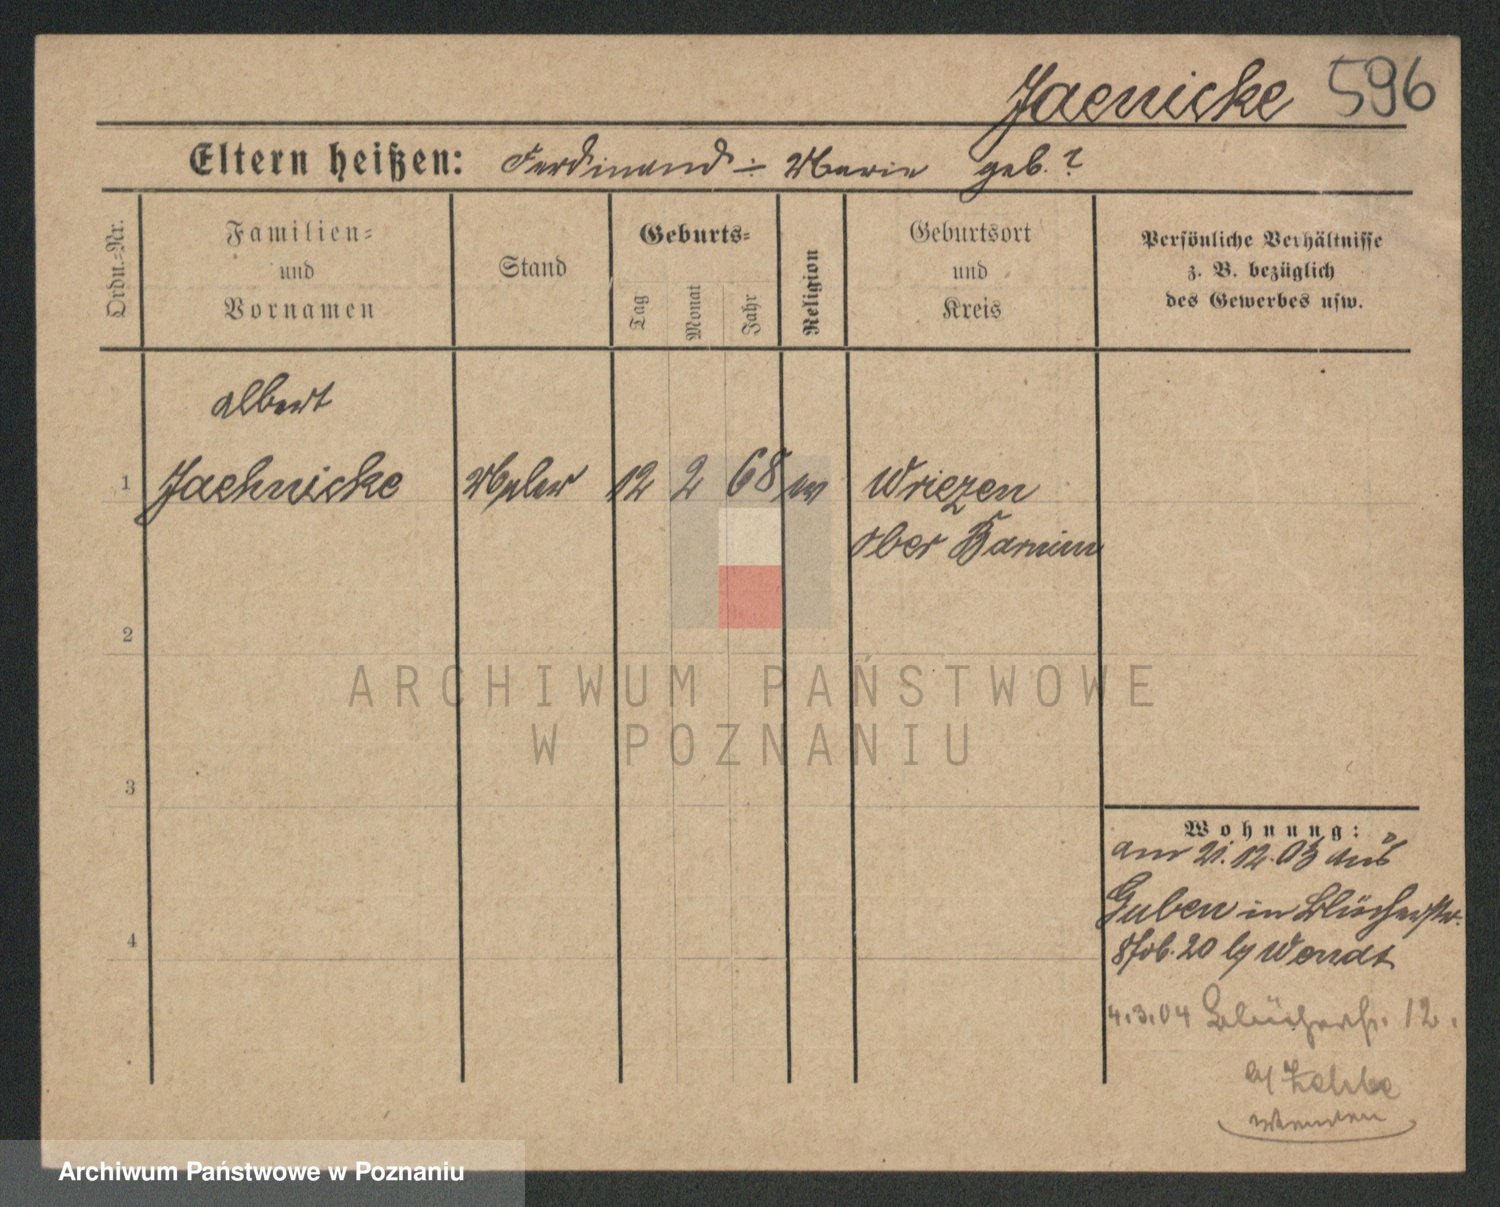 Jaenicke 596
Eltern heißen: Ferdinand ÷ Marie geb. ?
Ordn.-Nr.
Familien-
und
Vornamen
Stand
Geburts-
Tag
Monat
Jahr
Religion
Geburtsort
und
Kreis
Persönliche Verhältnisse
z. B. bezüglich
des Gewerbes usw.
Albert
1 Jaehnicke Maler 12 2 68 ev Wriezen
Ober Barnim
2
ARCHIWUM PAŃSTWOWE
W POZNANIU
3
Wohnung:
am 21.12.03 aus
Guben in Blücherstr.
8 20 bei Wendt
4
4.3.04 Blücherstr. 12.
wenden
Archiwum Państwowe w Poznaniu